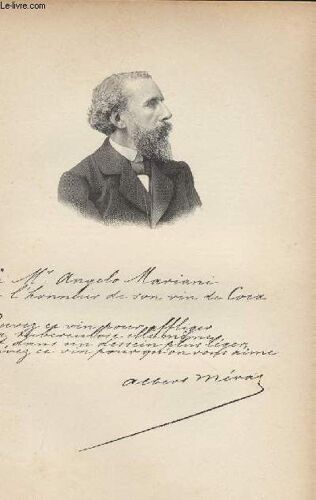 Le-livre.com
Mr Angelo Mariani
l'honneur de son vin de Coca
ce vin pour affliger
dans un dessein plus léger
ce vin pour qu'on vous aime
Albert Méra